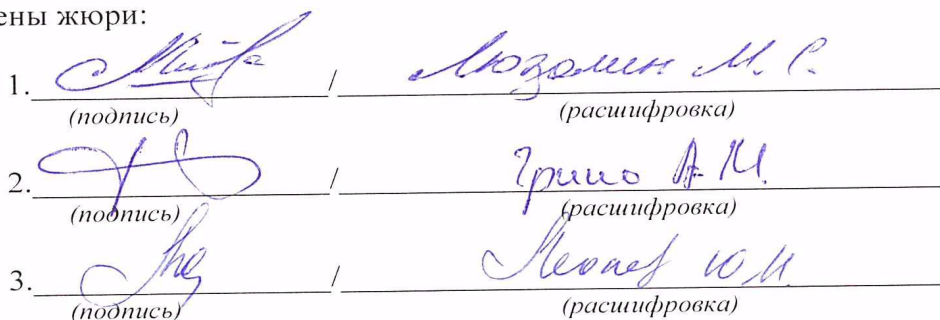 ены жюри:
1. / Люзолин М. С.
(подпись) (расшифровка)
2. / А. М.
(подпись) (расшифровка)
3. / Ю И
(подпись) (расшифровка)